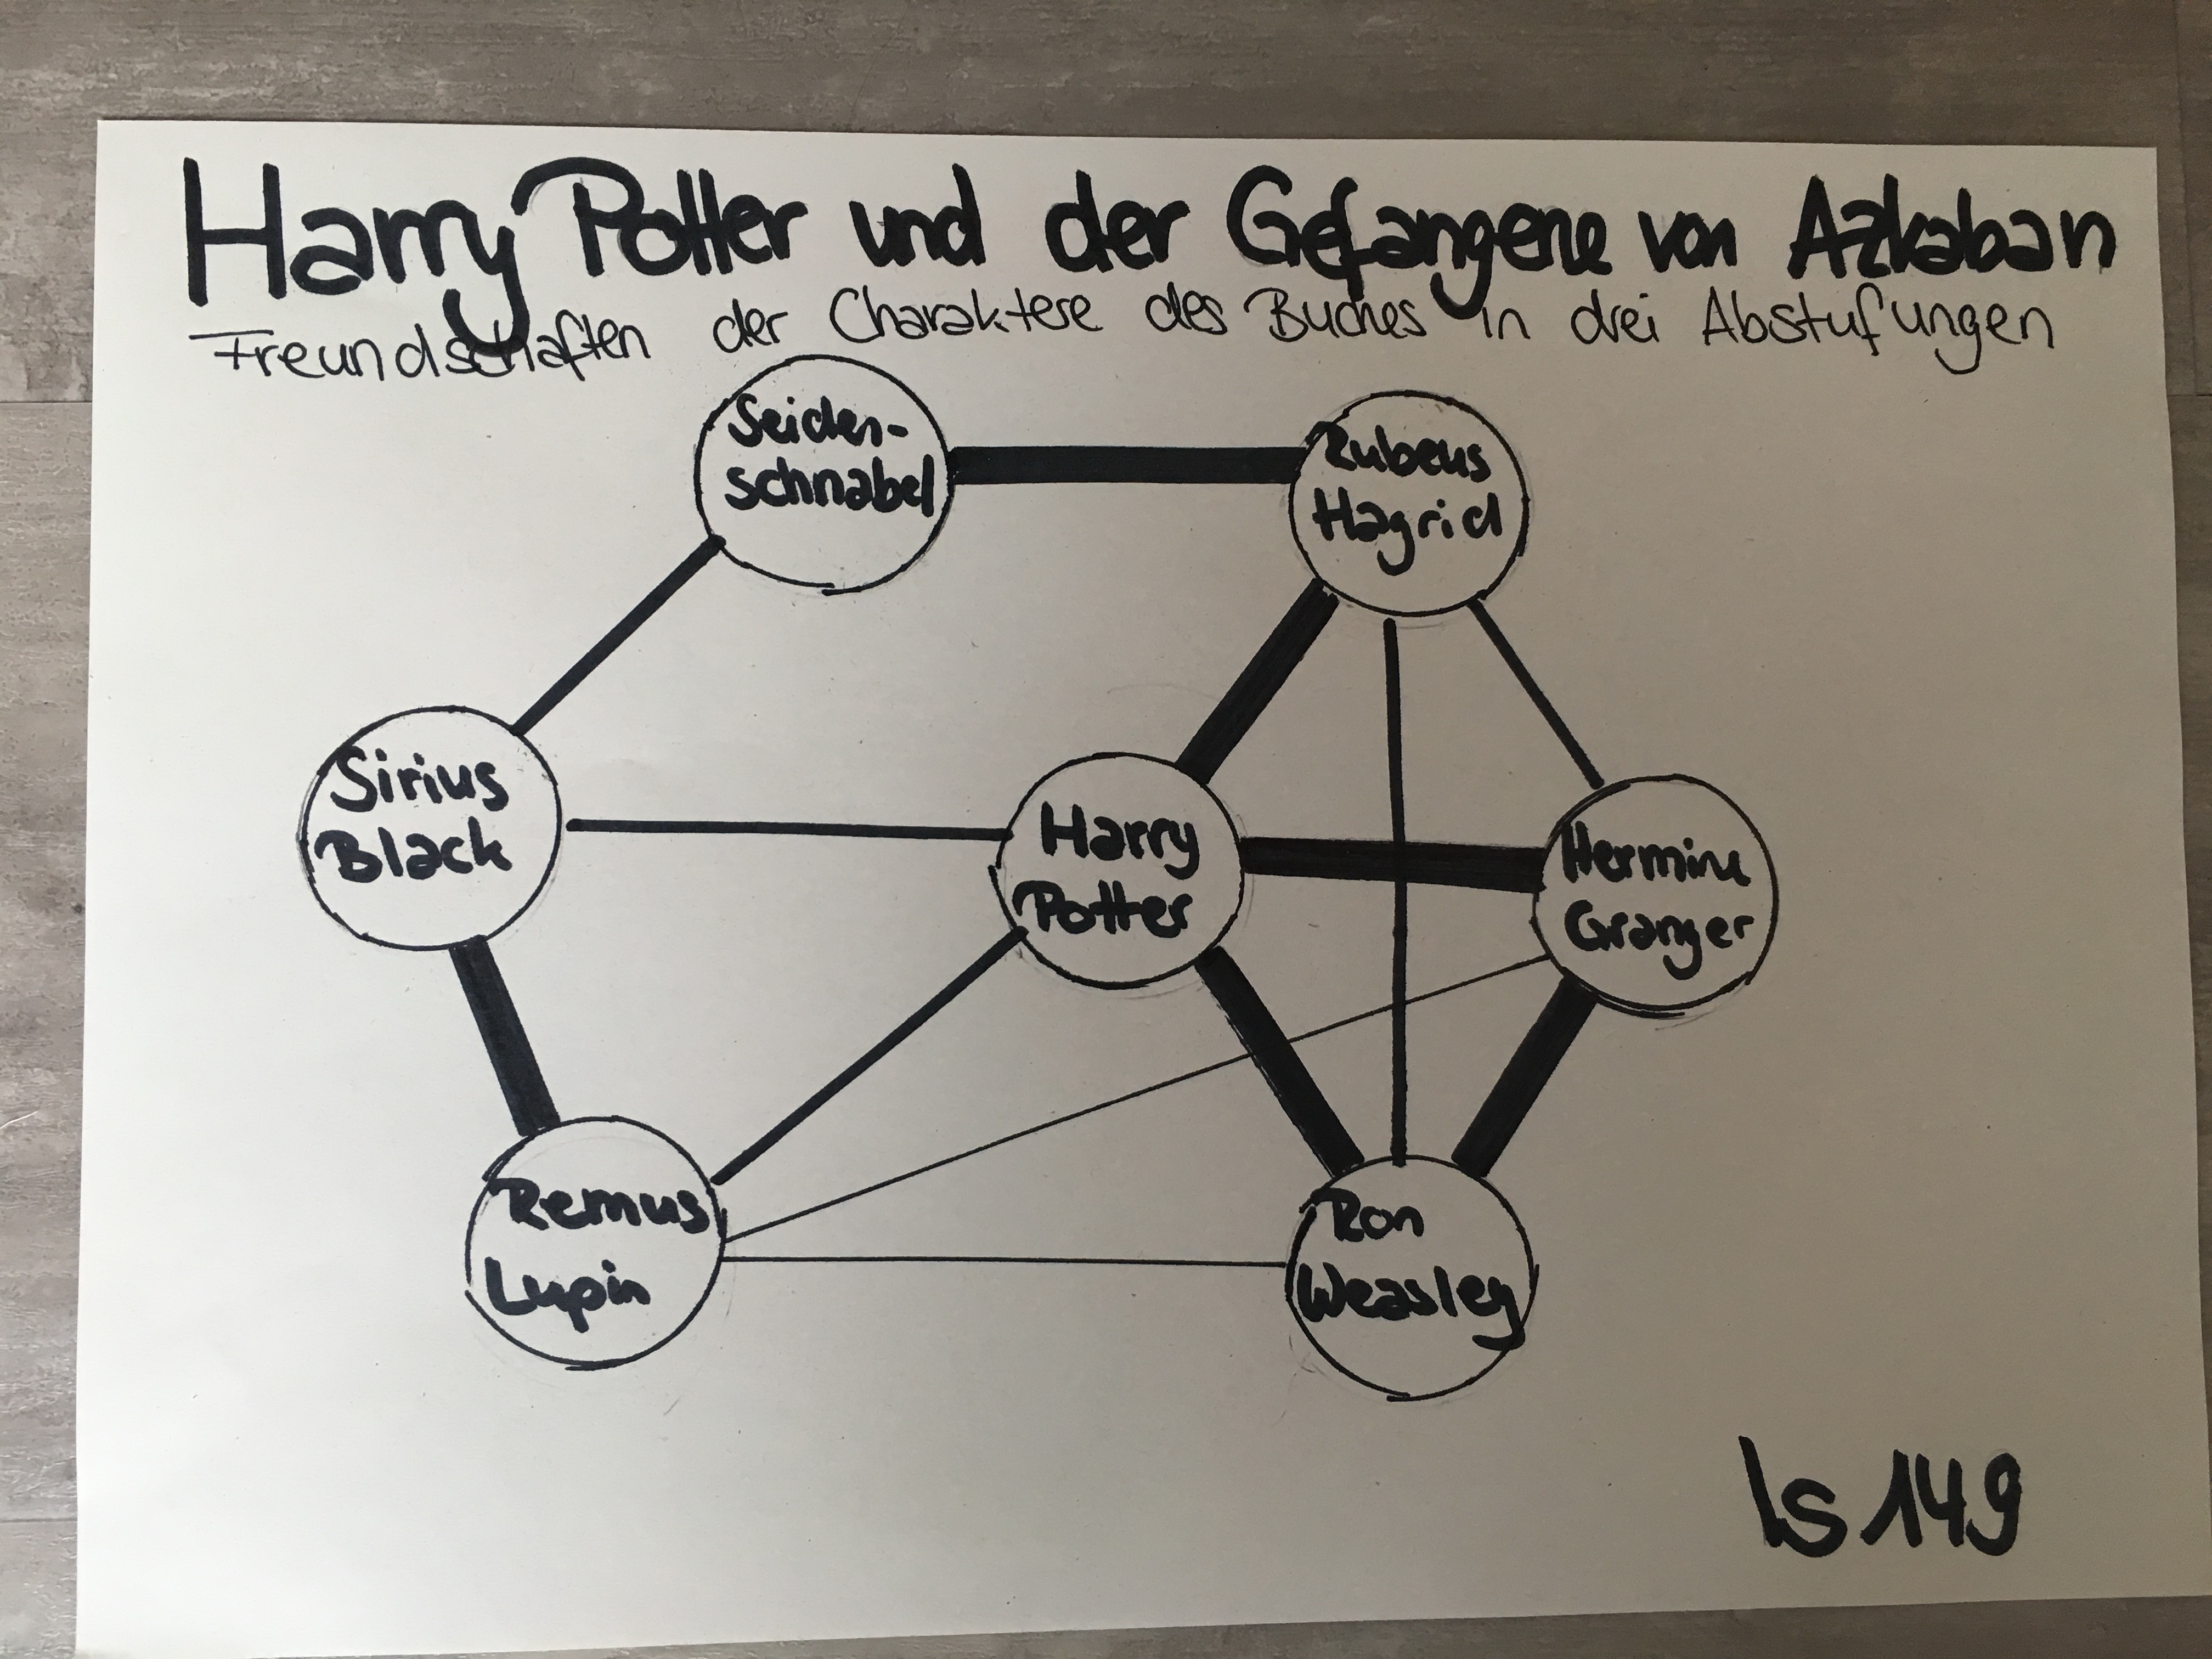 Harry Potter und der Gefangene von Azkaban
Freundschaften der Charaktere des Buches in drei Abstufungen
Seiden-
schnabel
Rubeus
Hagrid
Sirius
Black
Harry
Potter
Hermine
Granger
Remus
Lupin
Ron
Weasley
ls149